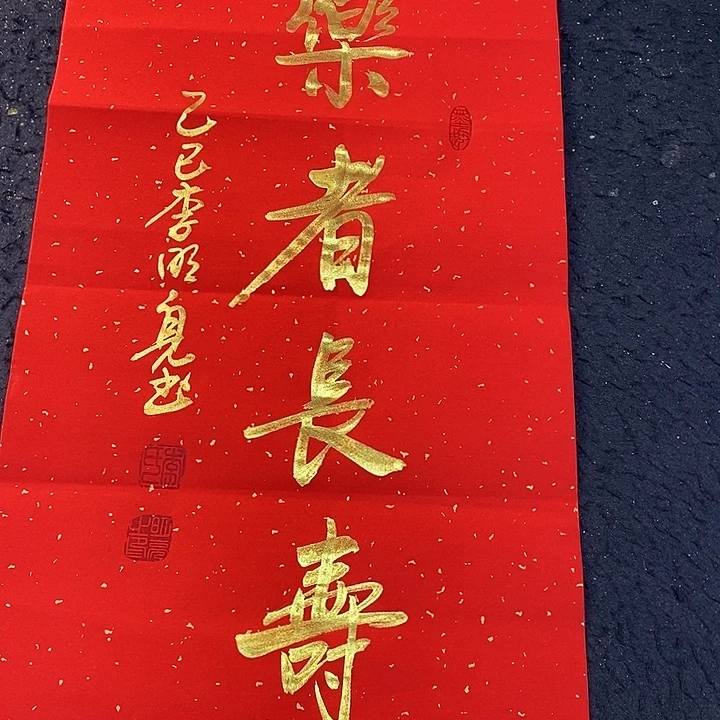 樂者長壽
乙巳李明見书